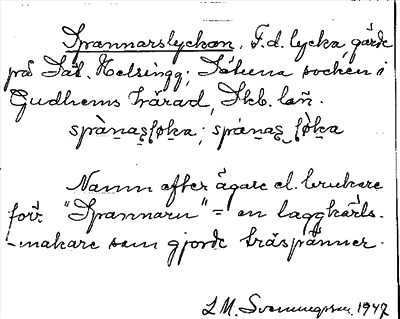 Spannarslyckan. F.d. lycka, gärde
på Säl. Helsingg; Sätuna socken i
Gudhems härad, Skb. län.
spànas̱ļøka; spánas̱ ļø̀ka
Namn efter ägare el. brukare
förr "Spannarn" = en laggkärls-
-makare som gjorde träspänner.
L M. Svenungsson. 1947